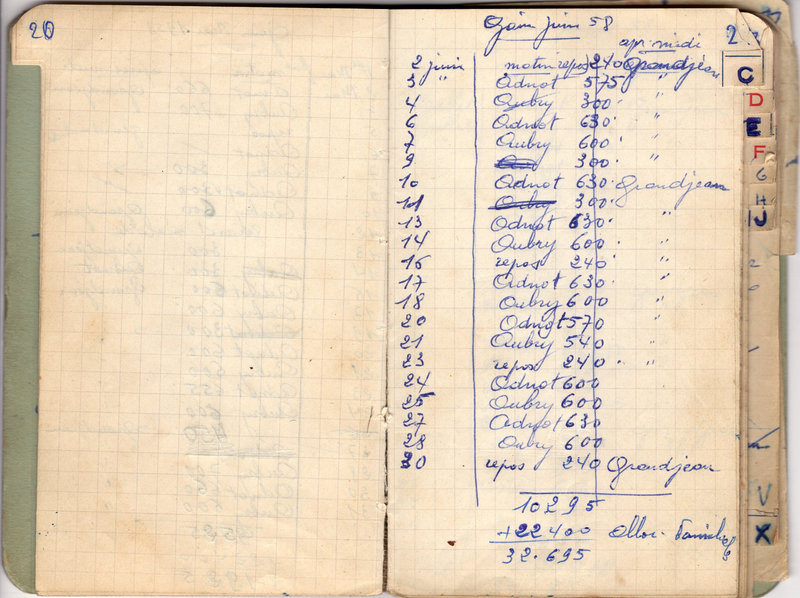 20
Gain juin 58
apr. midi 2
2 juin matin repos 240 Grandjean
3 " Adnot 575 "
4 Aubry 300 "
6 Adnot 630 "
7 Aubry 600 "
9 300 "
10 Adnot 630 Grandjean
11 Aubry 300
13 Adnot 630 "
14 Aubry 600 "
16 repos 240 "
17 Adnot 630 "
18 Aubry 600 "
20 Adnot 570 "
21 Aubry 540 "
23 repos 240 "
24 Adnot 600
25 Aubry 600
27 Adnot 630
28 Aubry 600
30 repos 240 Grandjean
10295
+22400 Alloc. Familiales
32.695
C
D
E
F
G
H
J
V
X